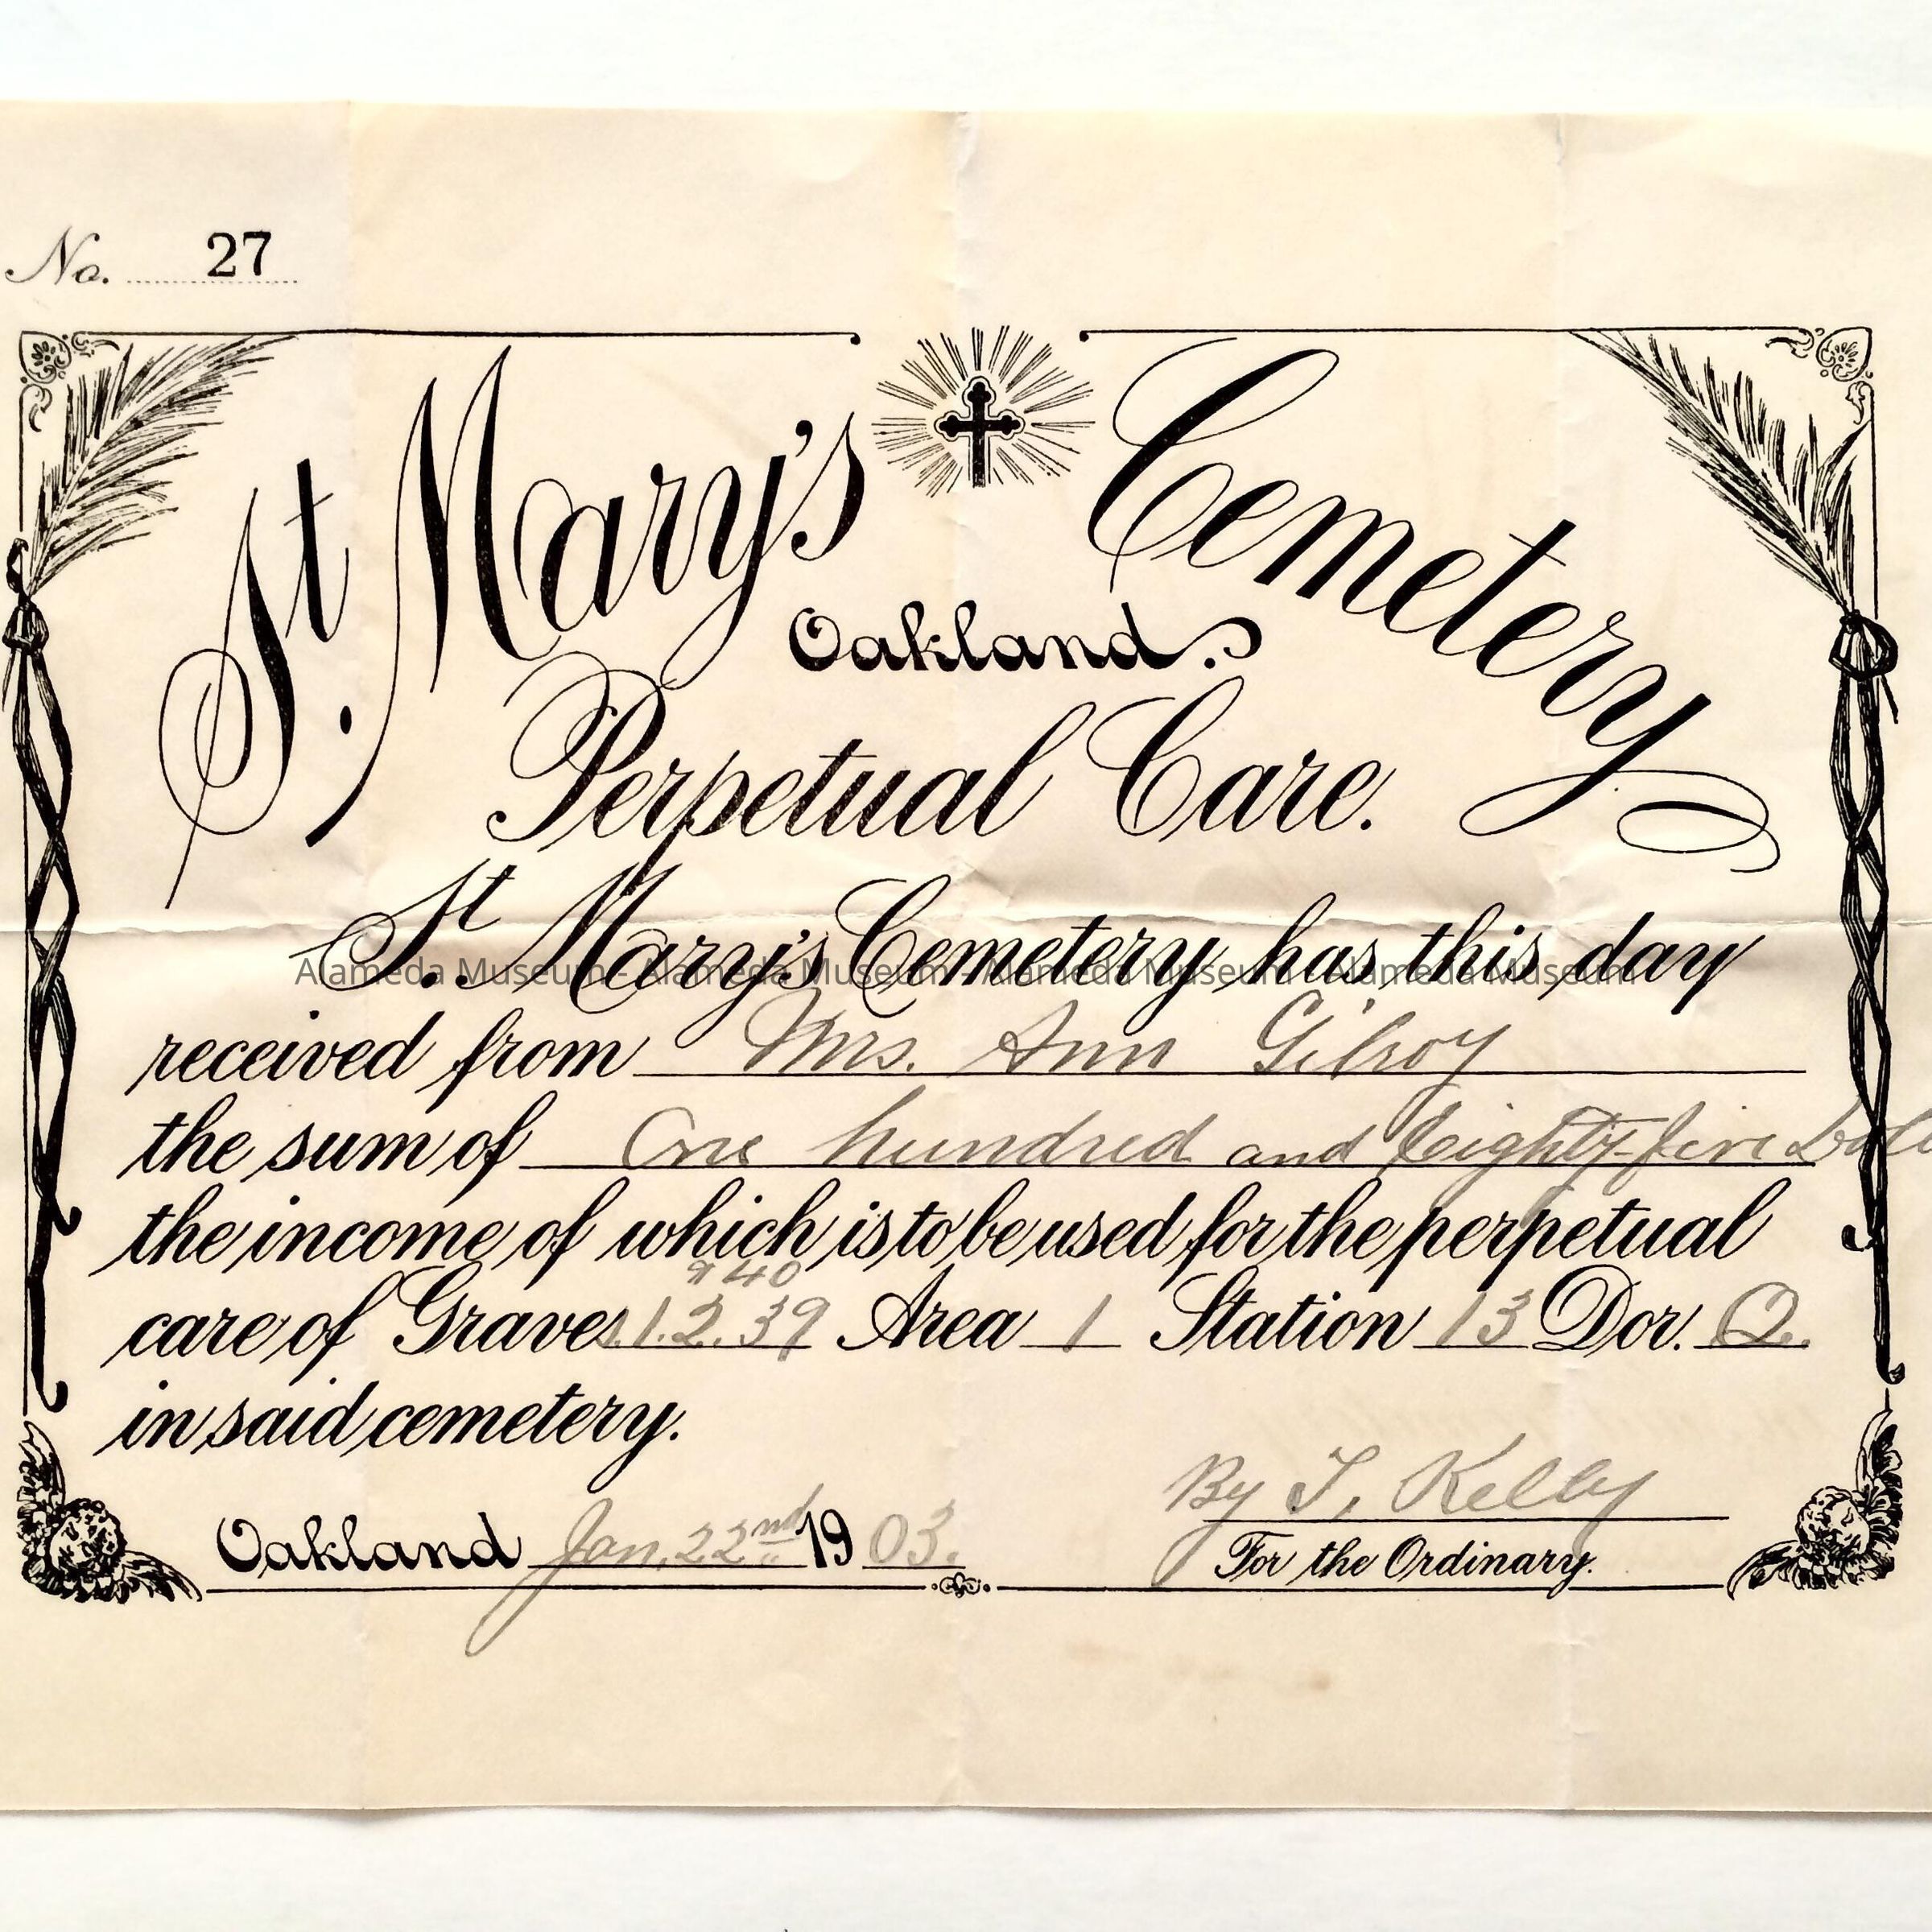 No. 27
St. Mary's Cemetery
Oakland.
Perpetual Care.
St. Mary's Cemetery has this day
Alameda Museum - Alameda Museum - Alameda Museum - Alameda Museum
received from Mrs. Ann Gilroy
the sum of One hundred and Eighty-five Doll
the income of which is to be used for the perpetual
& 40
care of Graves 1. 2. 39 Area 1 Station 13 Dor. Q.
in said cemetery.
By T. Kelly
Oakland Jan. 22nd 1903.
For the Ordinary.